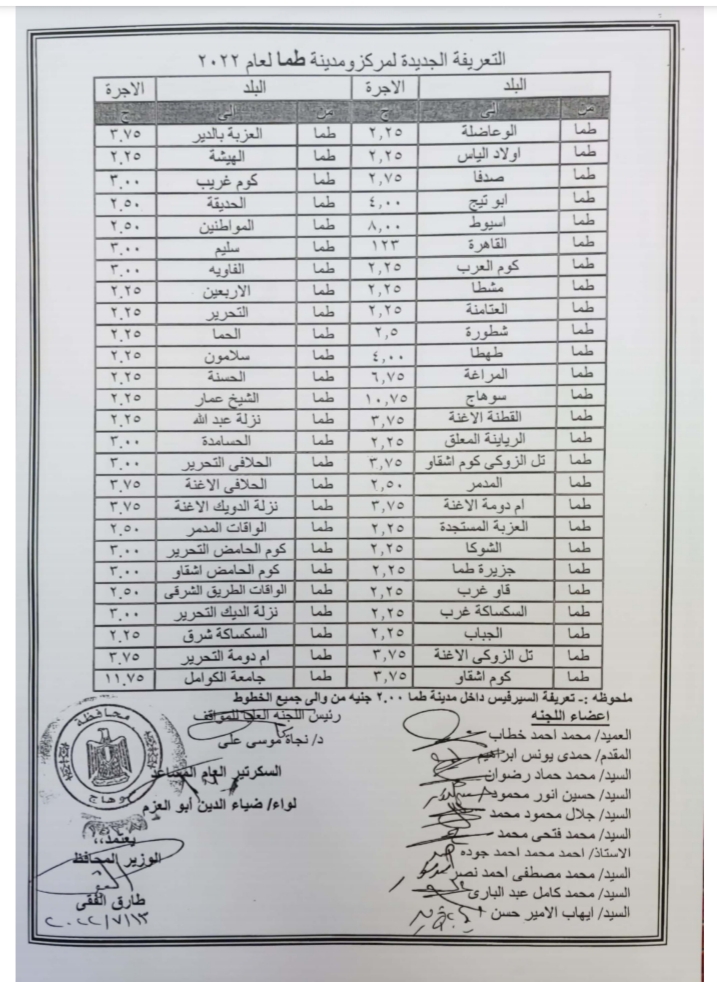 التعريفة الجديدة لمركزومدينة طما لعام ٢٠٢٢
البلد الاجرة البلد الاجرة
من الى ج من الى ج
طما الوعاضلة ٢,٢٥ طما العزبة بالدير ٣.٧٥
طما اولاد الياس ٢,٢٥ طما الهيشة ٢.٢٥
طما صدفا ٢,٧٥ طما كوم غريب ٣.٠٠
طما ابو تيج ٤,٠٠ طما الحديقة ٢.٥٠
طما اسيوط ٨,٠٠ طما المواطنين ٢.٥٠
طما القاهرة ١٢٣ طما سليم ٣.٠٠
طما كوم العرب ٢,٢٥ طما الفاويه ٣.٠٠
طما مشطا ٢,٢٥ طما الاربعين ٢.٢٥
طما العتامنة ٢,٢٥ طما التحرير ٢.٢٥
طما شطورة ٢,٥ طما الحما ٢.٢٥
طما طهطا ٤,٠٠ طما سلامون ٢.٢٥
طما المراغة ٦,٧٥ طما الحسنة ٢.٢٥
طما سوهاج ١٠,٧٥ طما الشيخ عمار ٢.٢٥
طما القطنة الاغنة ٣,٧٥ طما نزلة عبد الله ٢.٢٥
طما الرياينة المعلق ٢,٢٥ طما الحسامدة ٣.٠٠
طما تل الزوكى كوم اشقاو ٣,٧٥ طما الحلافى التحرير ٣.٠٠
طما المدمر ٢,٥٠ طما الحلافى الاغنة ٣.٧٥
طما ام دومة الاغنة ٣,٧٥ طما نزلة الدويك الاغنة ٣.٧٥
طما العزبة المستجدة ٢,٢٥ طما الواقات المدمر ٢.٥٠
طما الشوكا ٢,٢٥ طما كوم الحامض التحرير ٣.٠٠
طما جزيرة طما ٢,٢٥ طما كوم الحامض اشقاو ٣.٠٠
طما قاو غرب ٢,٢٥ طما الواقات الطريق الشرقى ٢.٥٠
طما السكساكة غرب ٢,٢٥ طما نزلة الديك التحرير ٣.٠٠
طما الجباب ٢,٢٥ طما السكساكة شرق ٢.٢٥
طما تل الزوكى الاغنة ٣,٧٥ طما ام دومة التحرير ٣.٧٥
طما كوم اشقاو ٣,٧٥ طما جامعة الكوامل ١١.٧٥
ملحوظه :ـ تعريفة السيرفيس داخل مدينة طما ٢.٠٠ جنيه من والى جميع الخطوط
إعضاء اللجنه
العميد/ محمد احمد خطاب
المقدم/ حمدى يونس ابراهيم
السيد/ محمد حماد رضوان
السيد/ حسين انور محمود
السيد/ جلال محمود محمد
السيد/ محمد فتحى محمد
الاستاذ/ احمد محمد احمد جوده
السيد/ محمد مصطفى احمد نصر
السيد/ محمد كامل عبد البارى
السيد/ ايهاب الامير حسن
رئيس اللجنه العليا للمواقف
د/ نجاة موسى على
السكرتير العام المساعد
لواء/ ضياء الدين أبو العزم
يعتمد،،
الوزير المحافظ
طارق الفقى
٢٠٢٢/٧/١٣
محافظة
سوهاج